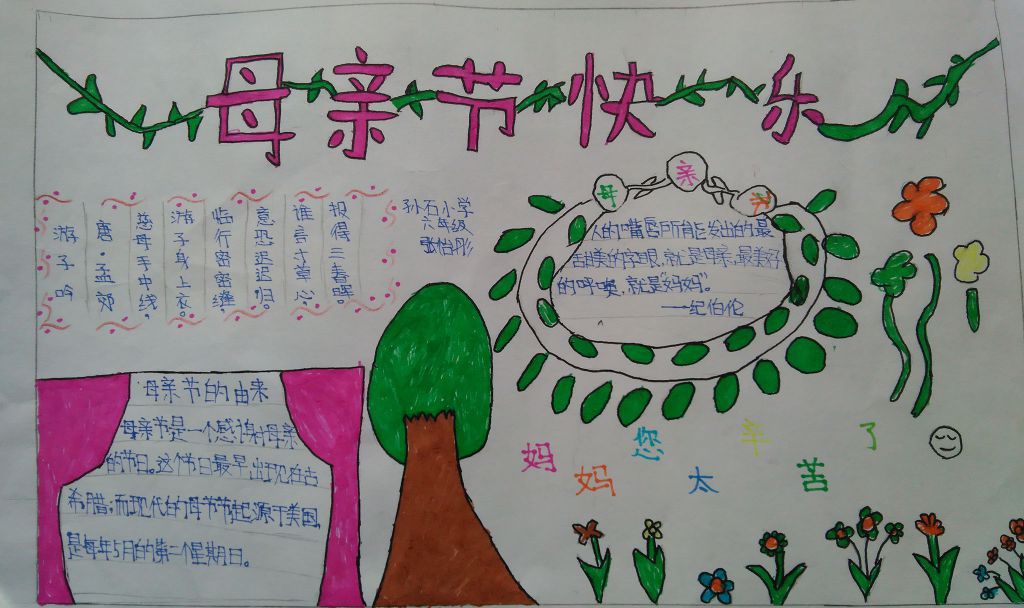 母亲节快乐
游子吟
唐·孟郊
慈母手中线，
游子身上衣。
临行密密缝，
意恐迟迟归。
谁言寸草心，
报得三春晖。
孙石小学
六年级
张怡彤
母亲
人的嘴唇所能发出的最
甜美的字眼，就是母亲，最美好
的呼唤，就是“妈妈”。
——纪伯伦
母亲节的由来
母亲节是一个感谢母亲
的节日。这个节日最早出现在古
希腊；而现代的母亲节起源于美国，
是每年5月的第二个星期日。
妈妈您太辛苦了